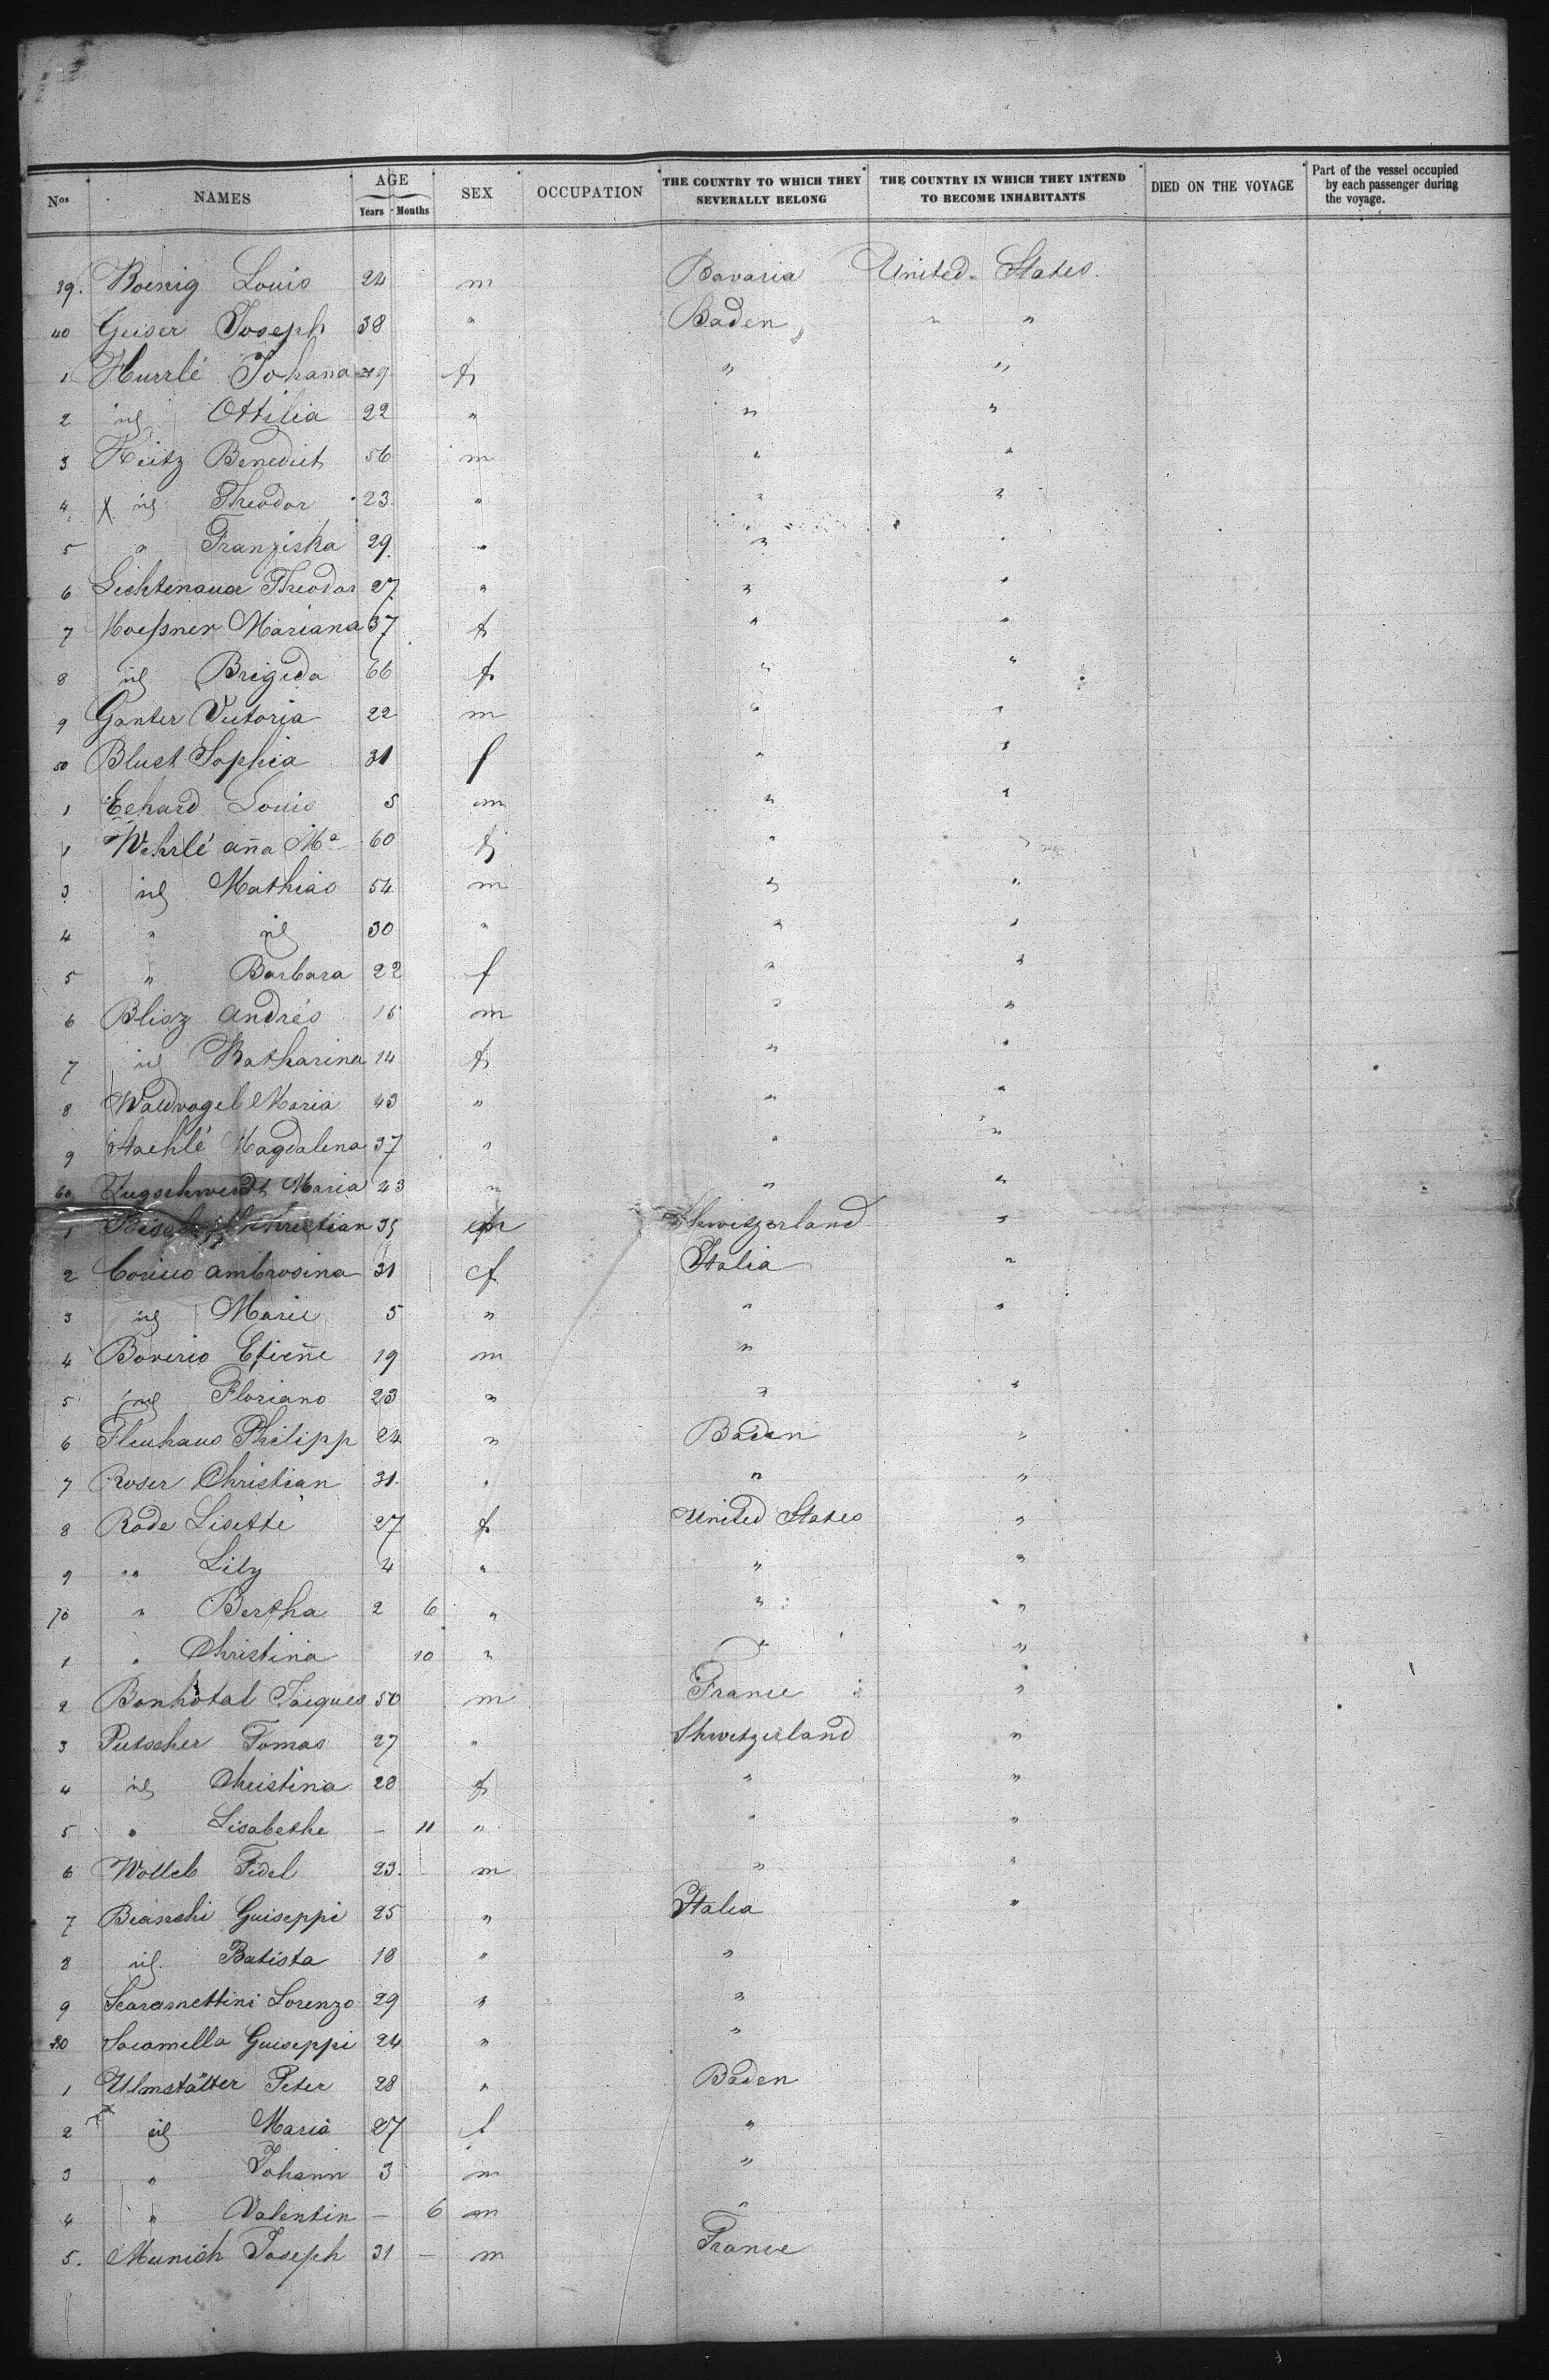 Nos NAMES AGE Years Months SEX OCCUPATION THE COUNTRY TO WHICH THEY SEVERALLY BELONG THE COUNTRY IN WHICH THEY INTEND TO BECOME INHABITANTS DIED ON THE VOYAGE Part of the vessel occupied by each passenger during the voyage.
39. Koenig Louis 24 m Bavaria United States.
40 Geiser Joseph 38 " Baden " "
1 Hurrlé Johana 19 f " "
2 id Ottilia 22 " " "
3 Heitz Benedict 56 m " "
4 X id Theodor 23. " " "
5 " Franziska 29. " " "
6 Lichtenauer Theodor 27 " " "
7 Moeßner Mariana 37 f " "
8 id Brigida 66 f " "
9 Ganter Victoria 22 m " "
50 Blust Sophia 31 f " "
1 Echard Louis 5 m " "
1 Wehrlé aña Ma 60 f " "
3 id Mathias 54 m " "
4 " id 30 " " "
5 " Barbara 22 f " "
6 Blisz Andrés 15 m " "
7 id Katharina 14 f " "
8 Waldvogel Maria 43 " " "
9 Staehlé Magdalena 37 " " "
60 Zugschwerdt Maria 43 " " "
1 Christian 35 m Shwitzerland "
2 Ambrosina 31 f Italia "
3 id Marie 5 " " "
4 Boverio Etieñe 19 m "
5 id Floriano 23 " " "
6 Philipp 24 " Baden "
7 Roser Christian 31. " " "
8 Rode Lisette 27 f United States "
9 " Lily 4 " " "
70 " Bertha 2 6 " " "
1 " Christina 10 " " "
2 Bonhotal Jacques 50 m France "
3 Putscher Tomas 27 " Shwitzerland "
4 id Christina 28 f " "
5 " Lisabethe — 11 " " "
6 Wolleb Fidel 23. m " "
7 Bianchi Guiseppi 25 " Italia "
8 id. Batista 18 " "
9 Scaramettini Lorenzo 29 " "
80 Sacamella Guiseppi 24 " "
1 Ulmstätter Peter 28 " Baden
2 x id Maria 27 f "
3 " Johann 3 m "
4 " Valentin — 6 m "
5. Munich Joseph 31 — m France